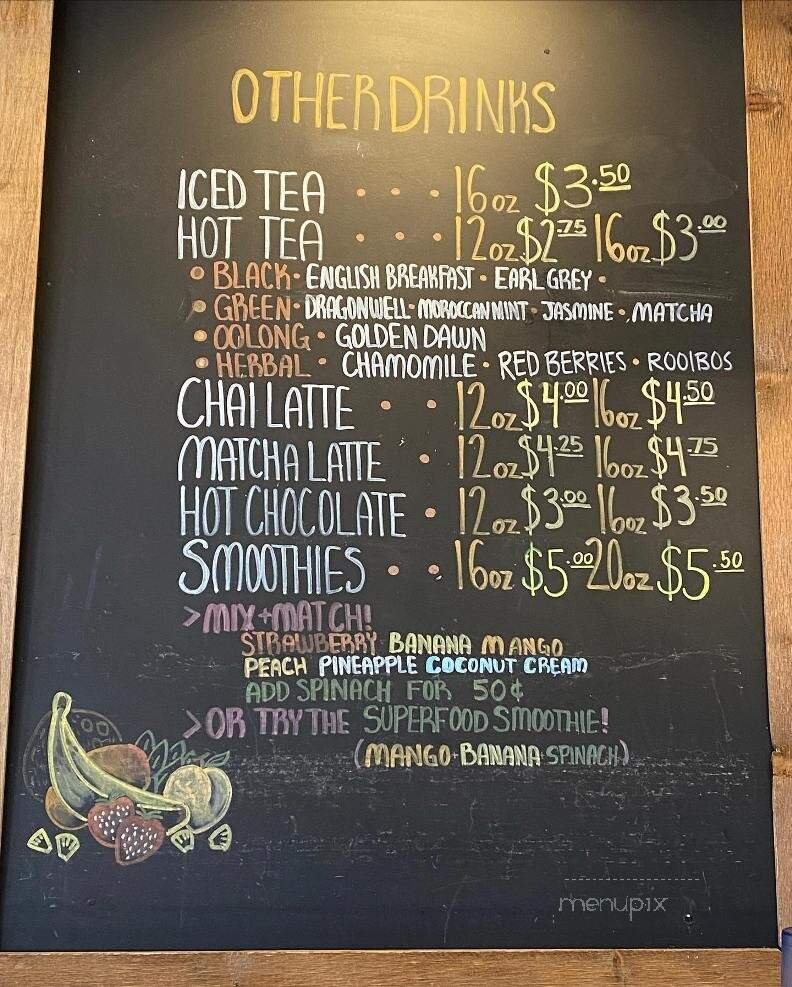 OTHER DRINKS
ICED TEA • • • 16oz $3.50
HOT TEA • • • 12oz $2.75 16oz $3.00
• BLACK • ENGLISH BREAKFAST • EARL GREY •
• GREEN • DRAGONWELL • MOROCCAN MINT • JASMINE • MATCHA
• OOLONG • GOLDEN DAWN
• HERBAL • CHAMOMILE • RED BERRIES • ROOIBOS
CHAI LATTE • • 12oz $4.00 16oz $4.50
MATCHA LATTE • 12oz $4.25 16oz $4.75
HOT CHOCOLATE • 12oz $3.00 16oz $3.50
SMOOTHIES • • 16oz $5.00 20oz $5.50
>MIX+MATCH!
STRAWBERRY BANANA MANGO
PEACH PINEAPPLE COCONUT CREAM
ADD SPINACH FOR 50¢
>OR TRY THE SUPERFOOD SMOOTHIE!
(MANGO•BANANA•SPINACH)
menupix